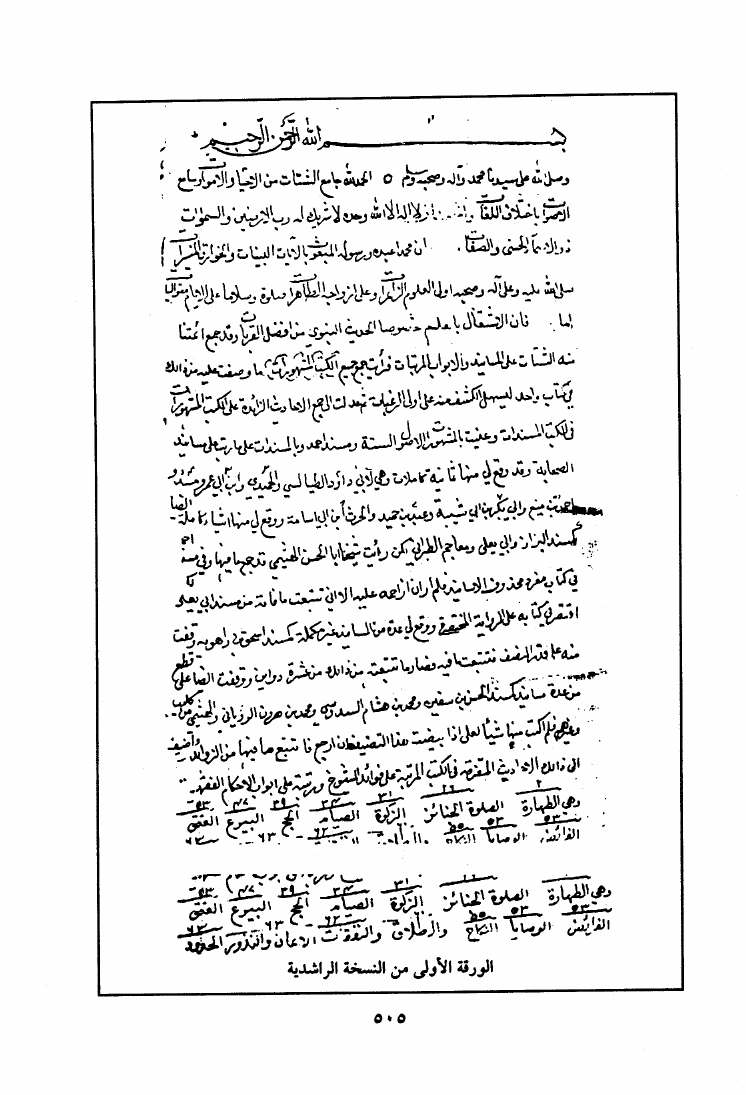 بسم الله الرحمن الرحيم
وصلى الله على سيدنا محمد وآله وصحبه وسلم ٥ الحمد لله جامع الشتات من الاحيا والاموات سامع
الاصوات باختلاف اللغات لا اله الا الله وحده لا شريك له رب الارضين والسموات
ذو الاسما الحسنى والصفات . ان محمدا عبده ورسوله المبعوث بالآيات البينات والخوارق
صلى الله عليه وعلى آله وصحبه اولى العلوم الزاهرات وعلى ازواجه الطاهرات صلوة وسلاما على
اما . فان الاشتغال بالعلم خصوصا الحديث النبوي من افضل القربات وقد جمع ائمتنا
منه الشتات على المسانيد والابواب المرتبات فرأيت جمع جميع الكتب المشهورات ما وصفت عليه من ذالك
في كتاب واحد ليسهل الكشف منه على اولى الرغبات ثم عدلت الى جمع الاحاديث الزائدة على الكتب المشهورات
في الكتب المسندات وعنيت بالمشهورات الاصول الستة ومسند احمد وبالمسندات على ما رتب على مسانيد
الصحابة وقد وقع لي منها ثمانية كاملات وهي لابي داؤد الطيالسي والحميدي وابن ابي عمر ومسدد
واحمد بن منيع وابي بكر بن ابي شيبة وعبد بن حميد والحرث ابن ابي اسامة ووقع لي منها اشياء كاملة ايضا
كمسند البزار وابي يعلى ومعاجم الطبراني لكن رأيت شيخنا ابا الحسن الهيثمي قد جمع ما فيها وفي مسند احمد
في كتاب مفرد محذوف الاسانيد فلم ار ان ازاحمه عليه الا اني تتبعت ما فاته من مسند ابي يعلى
اقتصر في كتابه على الرواية المختصرة ووقع لي عدة من المسانيد غير مكملة كمسند اسحق بن راهويه وقفت
منه على قدر النصف فتتبعت ما فيه فصار ما تتبعته من ذالك من عشرة دواوين ووقفت ايضا على قطع
من عدة مسانيد كمسند الحسن بن سفين ومحمد بن هشام السدوسي ومحمد بن هرون الروياني والهيثم بن كليب
وغيرهم فلم اكتب منها شيئا لعلى اذا بيضت هذا التصنيف ان ارجع فاتتبع ما فيها من الزوائد واضيف
الى ذالك الاحاديث المتفرقة في الكتب المرتبة على فوائد الشيوخ ورتبته على ابواب الاحكام الفقهية
وهي الطهارة الصلوة الجنائز الزكوة الصيام الحج البيوع العتق
الفرائض الوصايا النكاح والطلاق
وهي الطهارة الصلوة الجنائز الزكوة الصيام الحج البيوع العتق
الفرائض الوصايا النكاح والطلاق والنفقات الايمان والنذور الحدود
الورقة الأولى من النسخة الراشدية
٥٠٥